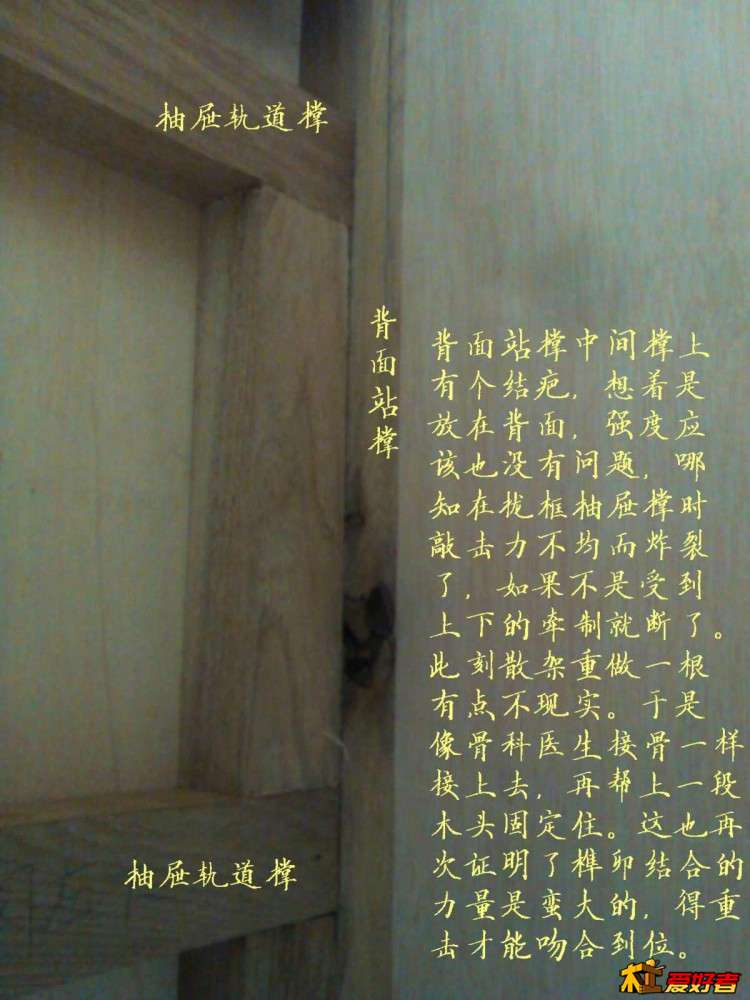 抽屉轨道撑
背面站撑
背面站撑中间撑上
有个结疤，想着是
放在背面，强度应
该也没有问题，哪
知在拢框抽屉撑时
敲击力不均而炸裂
了，如果不是受到
上下的牵制就断了。
此刻散架重做一根
有点不现实。于是
像骨科医生接骨一样
接上去，再帮上一段
木头固定住。这也再
次证明了榫卯结合的
力量是蛮大的，得重
击才能吻合到位。
抽屉轨道撑
木工爱好者